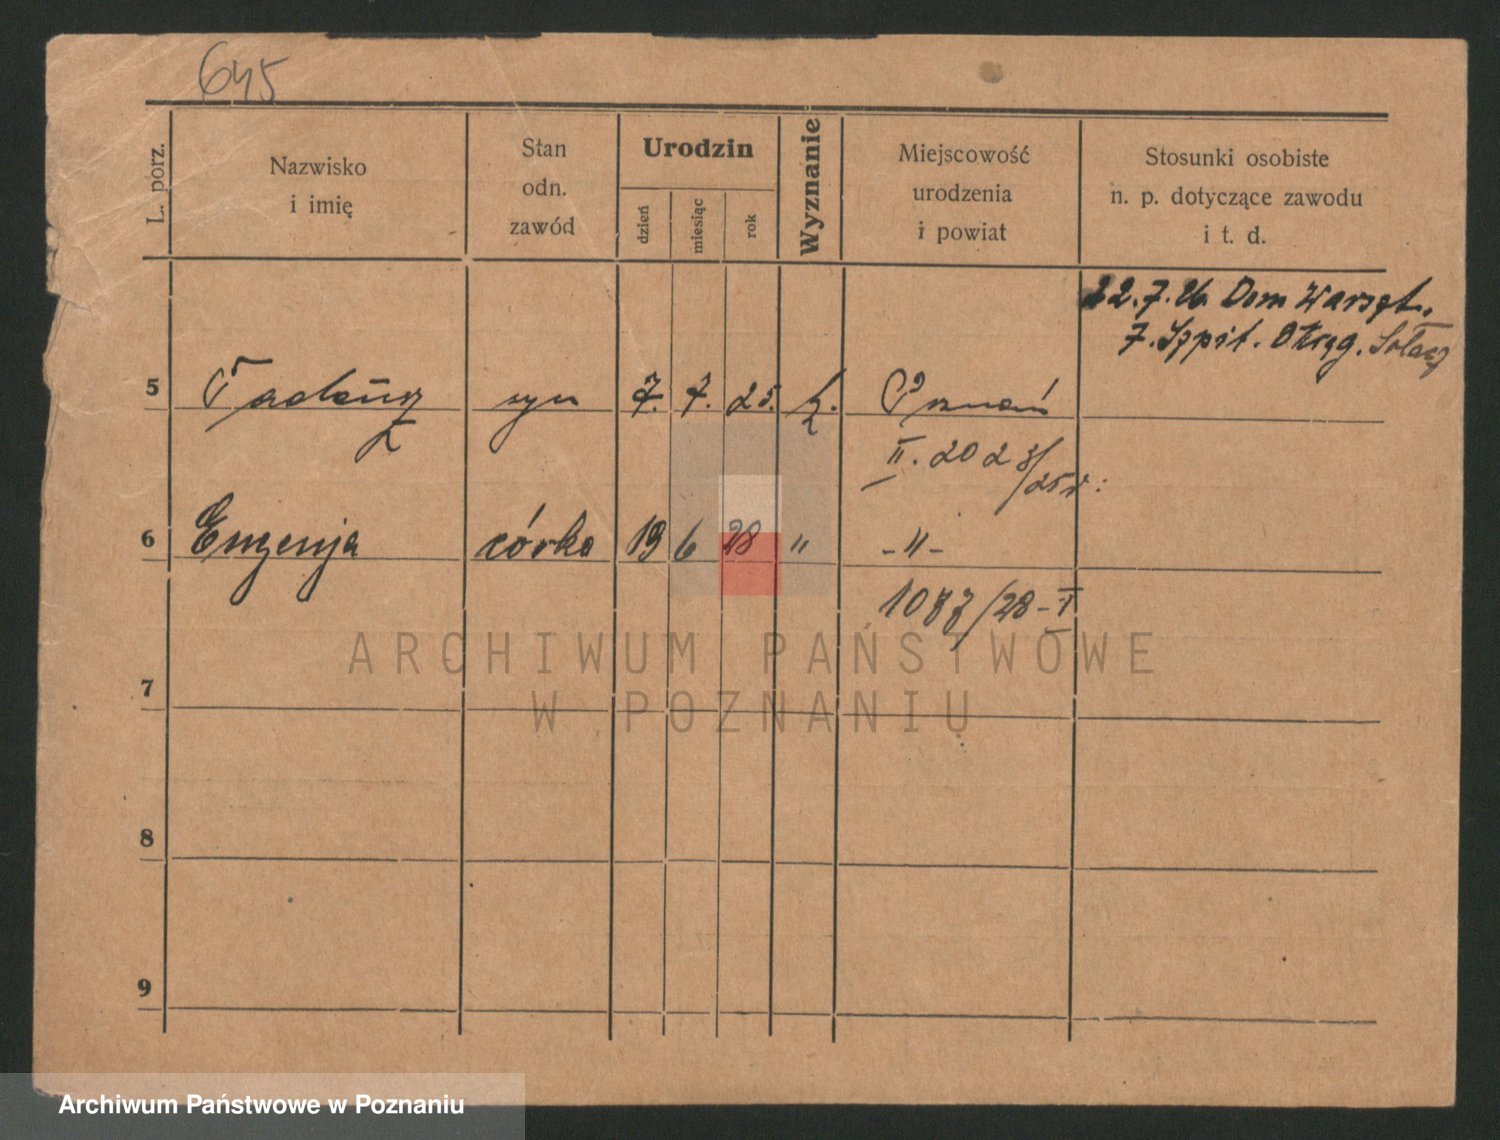 645
L. porz.
Nazwisko
i imię
Stan
odn.
zawód
Urodzin
dzień
miesiąc
rok
Wyznanie
Miejscowość
urodzenia
i powiat
Stosunki osobiste
n. p. dotyczące zawodu
i t. d.
22.7.26. Dom Warszt.
7. Szpit. Okręg. Sołacz
5 Tadeusz syn 7. 7. 25. k. Poznań
II. 2023/25r:
6 Eugenja córka 19 6 28 " -"-
1087/28-I
ARCHIWUM PAŃSTWOWE
W POZNANIU
7
8
9
Archiwum Państwowe w Poznaniu